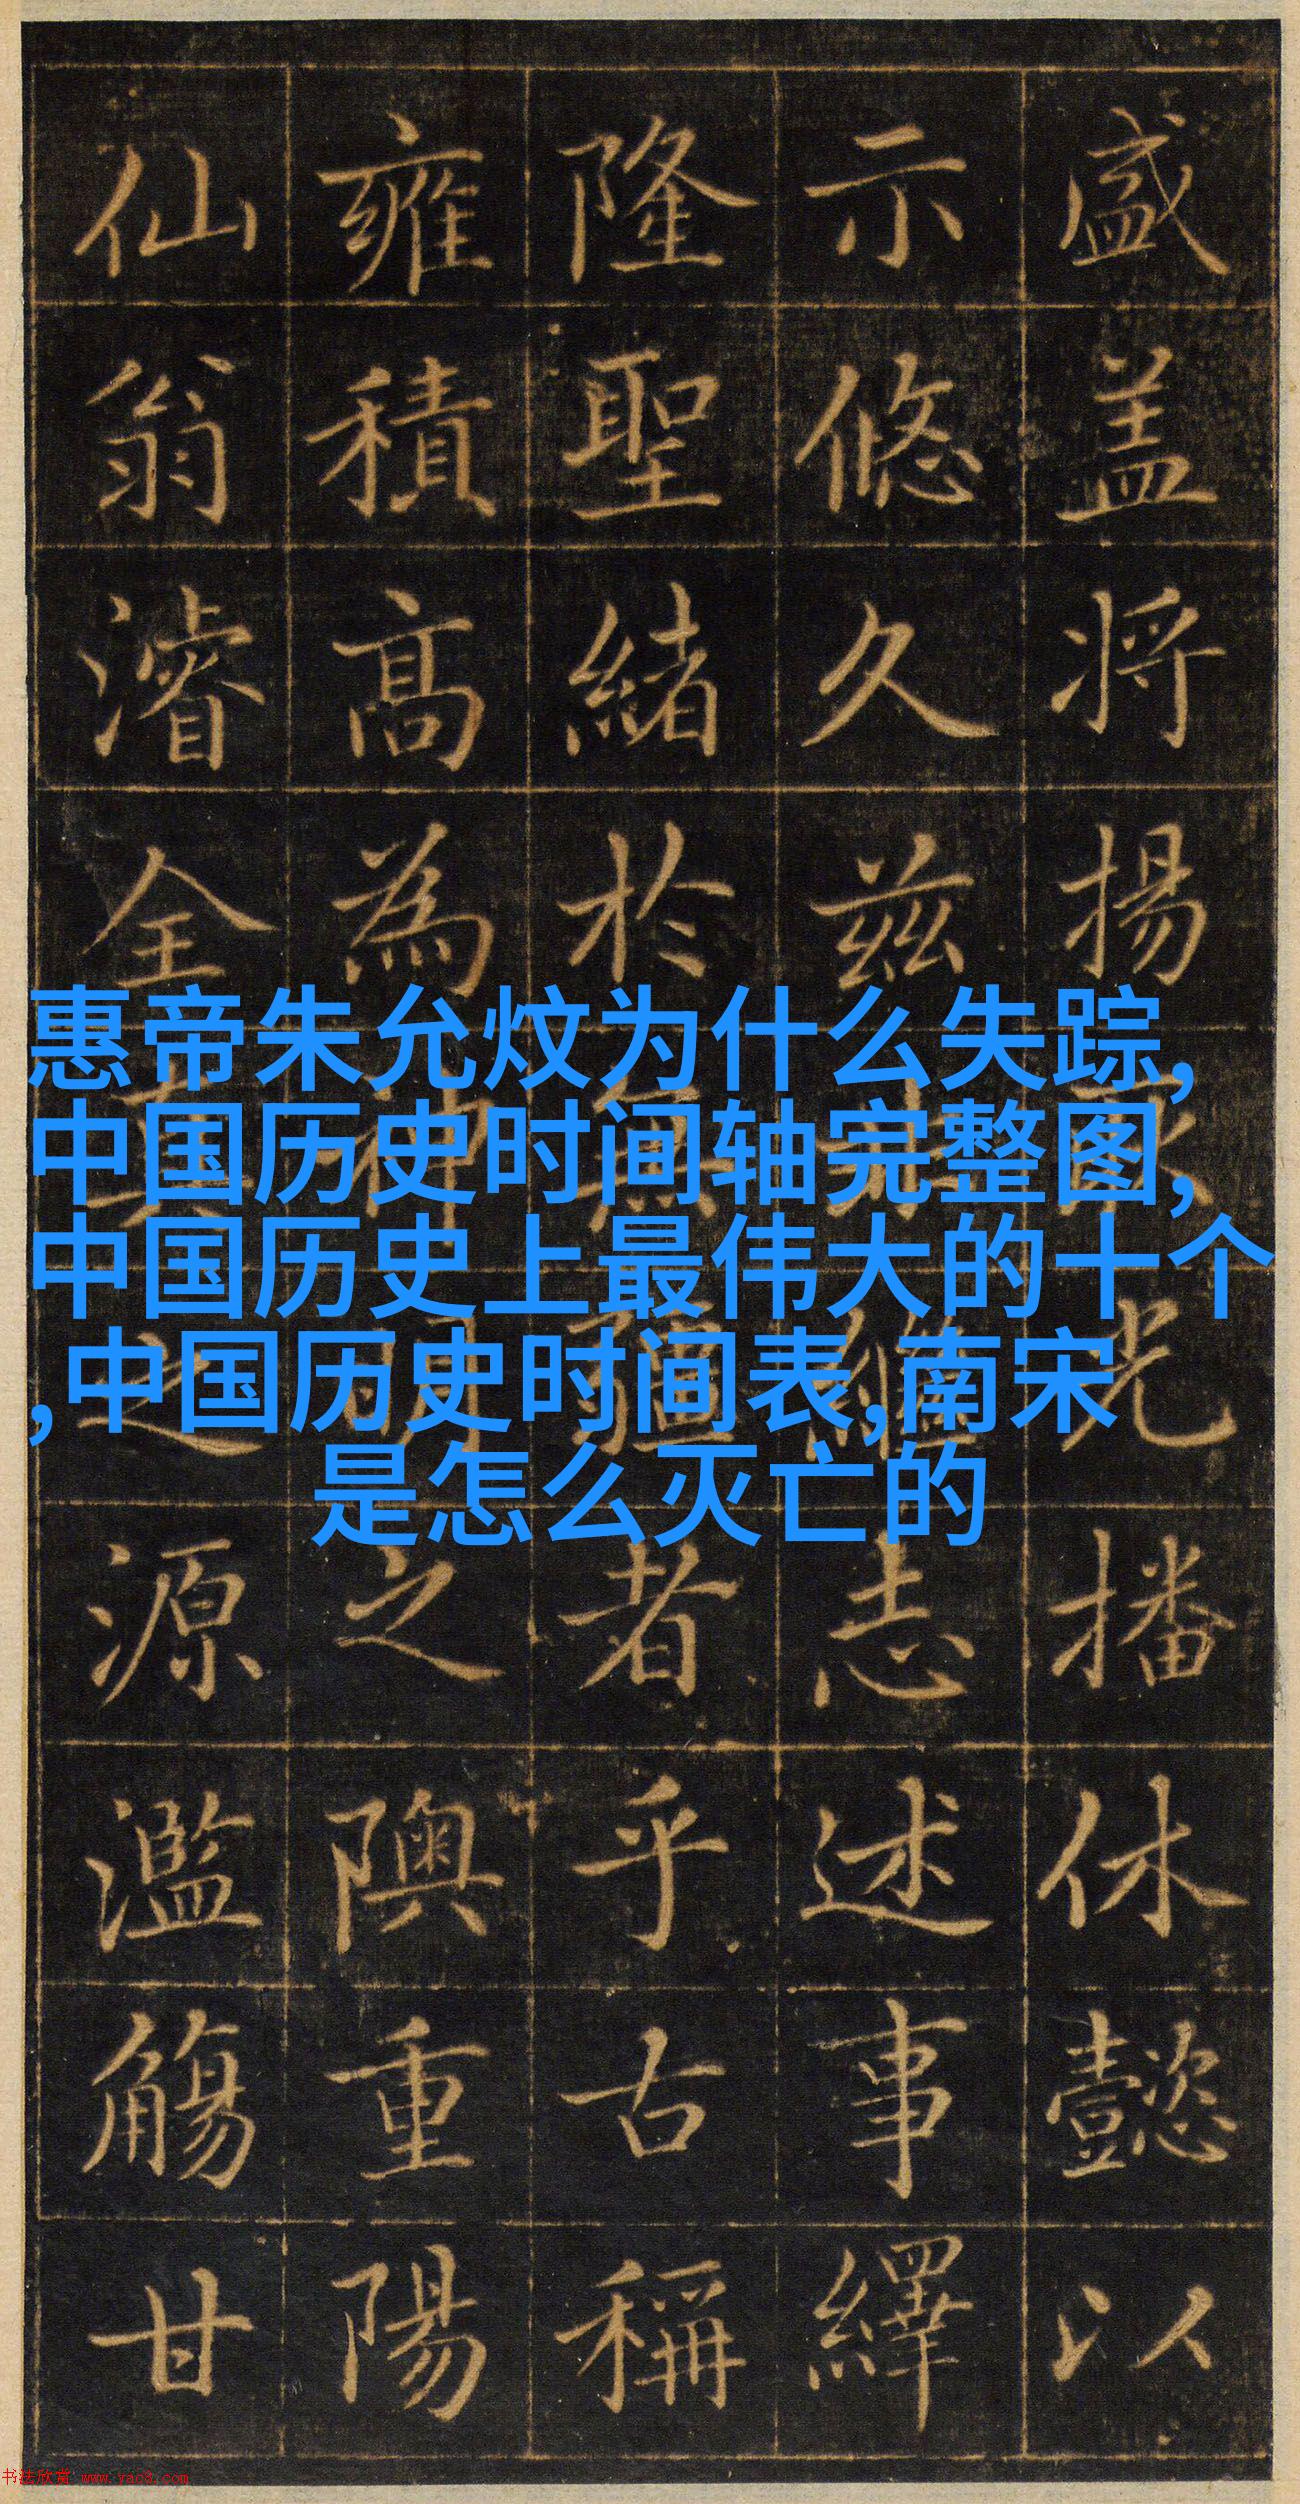 盛盖将揚光播休懿以
示悠久兹志述事繹
隆聖緒於無疆者乎古稱
雍積高為神明之隩重陽
仙翁濬全真之源濫觴甘
惠帝朱允炆为什么失踪,
中国历史时间轴完整图,
中国历史上最伟大的十个
,中国历史时间表,南宋
是怎么灭亡的
书法欣赏 www.yac8.com